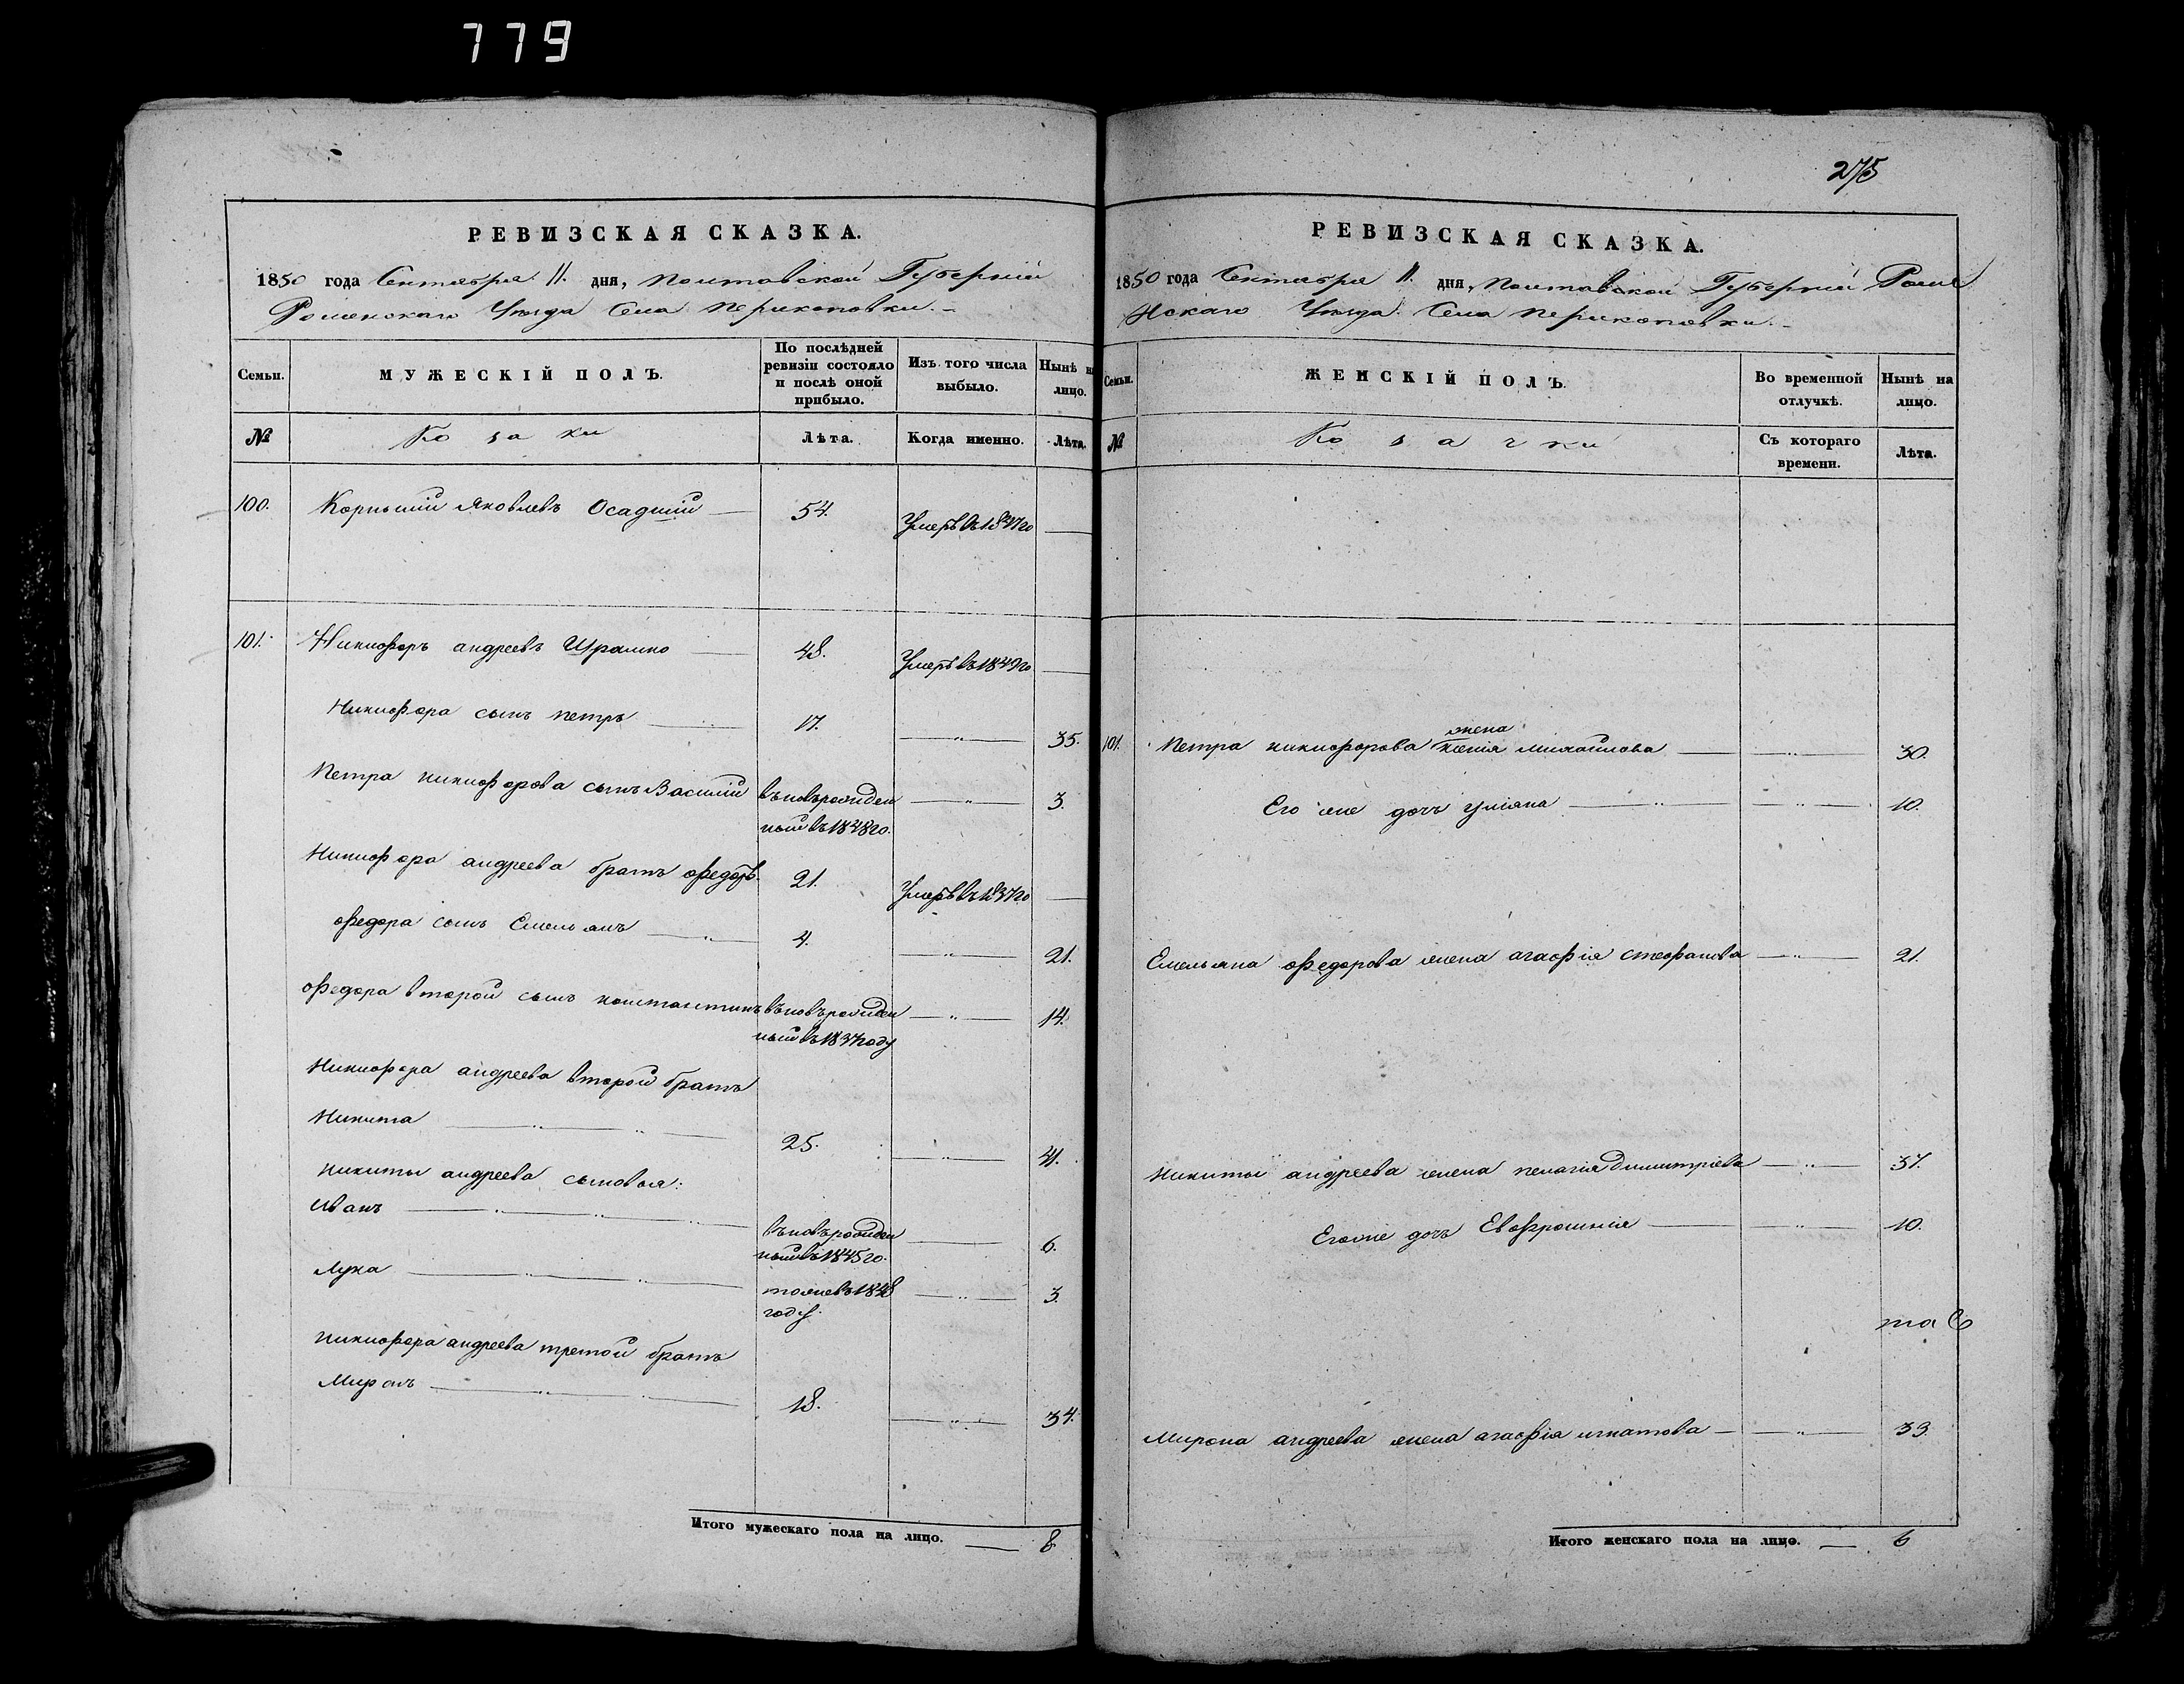 779
РЕВИЗСКАЯ СКАЗКА.
1850 года Сентября 11. дня, Полтавской Губерніи
Роменскаго Уѣзда Села Перикоповки.
Семьи.
МУЖЕСКІЙ ПОЛЪ.
По послѣдней ревизіи состояло и послѣ оной прибыло.
Изъ того числа выбыло.
Нынѣ на лицо.
№
Козаки
Лѣта.
Когда именно.
Лѣта.
100. Корнилий Яковлевъ Осадший 54.
101. Никифоръ андреевъ 48. Умеръ въ 1849 го
Никифора сынъ петръ 17. 35.
Петра никифорова сынъ Василій въновьрожден 3.
ный въ 1848 го.
Никифора андреева братъ федоръ. 21. Умеръ въ 1837 го
федора сынъ Емельянъ 4. 21.
федора второй сынъ константинъ въновьрожден 14.
ный въ 1837 году
Никифора андреева второй братъ
Никита 25. 41.
никиты андреева сыновья:
Иванъ въновьрожден 6.
ный въ 1845 го.
Лука тоже въ 1848 3.
году.
никифора андреева третой братъ
Миронъ 18. 34.
Итого мужескаго пола на лицо. 8
275
РЕВИЗСКАЯ СКАЗКА.
1850 года Сентября 11. дня, Полтавской Губерніи Роме
нскаго Уѣзда Села Перикоповки.
Семьи.
ЖЕНСКІЙ ПОЛЪ.
Во временной отлучкѣ.
Нынѣ на лицо.
№
Козачки
Съ котораго времени.
Лѣта.
жена
101. Петра никифорова Ксенія михайлова 30.
Его же дочь уліяна 10.
Емельяна федорова жена агафія стефанова 21.
Никиты андреева жена пелагія Димитріева 37.
Егоже дочь Евфросинія 10.
Мирона андреева жена агафія игнатова 33.
Итого женскаго пола на лицо. 6